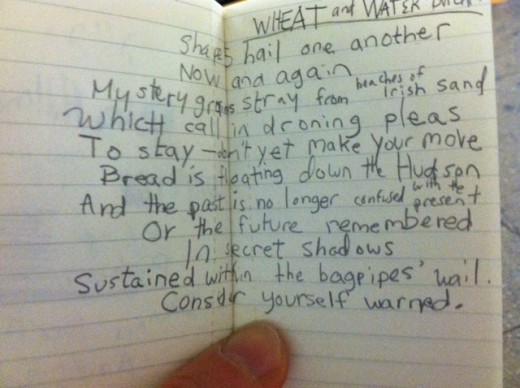 WHEAT and WATER
Shapes hail one another
Now and again
Mystery stray from beaches of Irish sand
Which call in droning pleas
To stay — don't yet make your move
Bread is floating down the Hudson
And the past is no longer confused with the present
Or the future remembered
In secret shadows
Sustained within the bagpipes' wail.
Consider yourself warned.